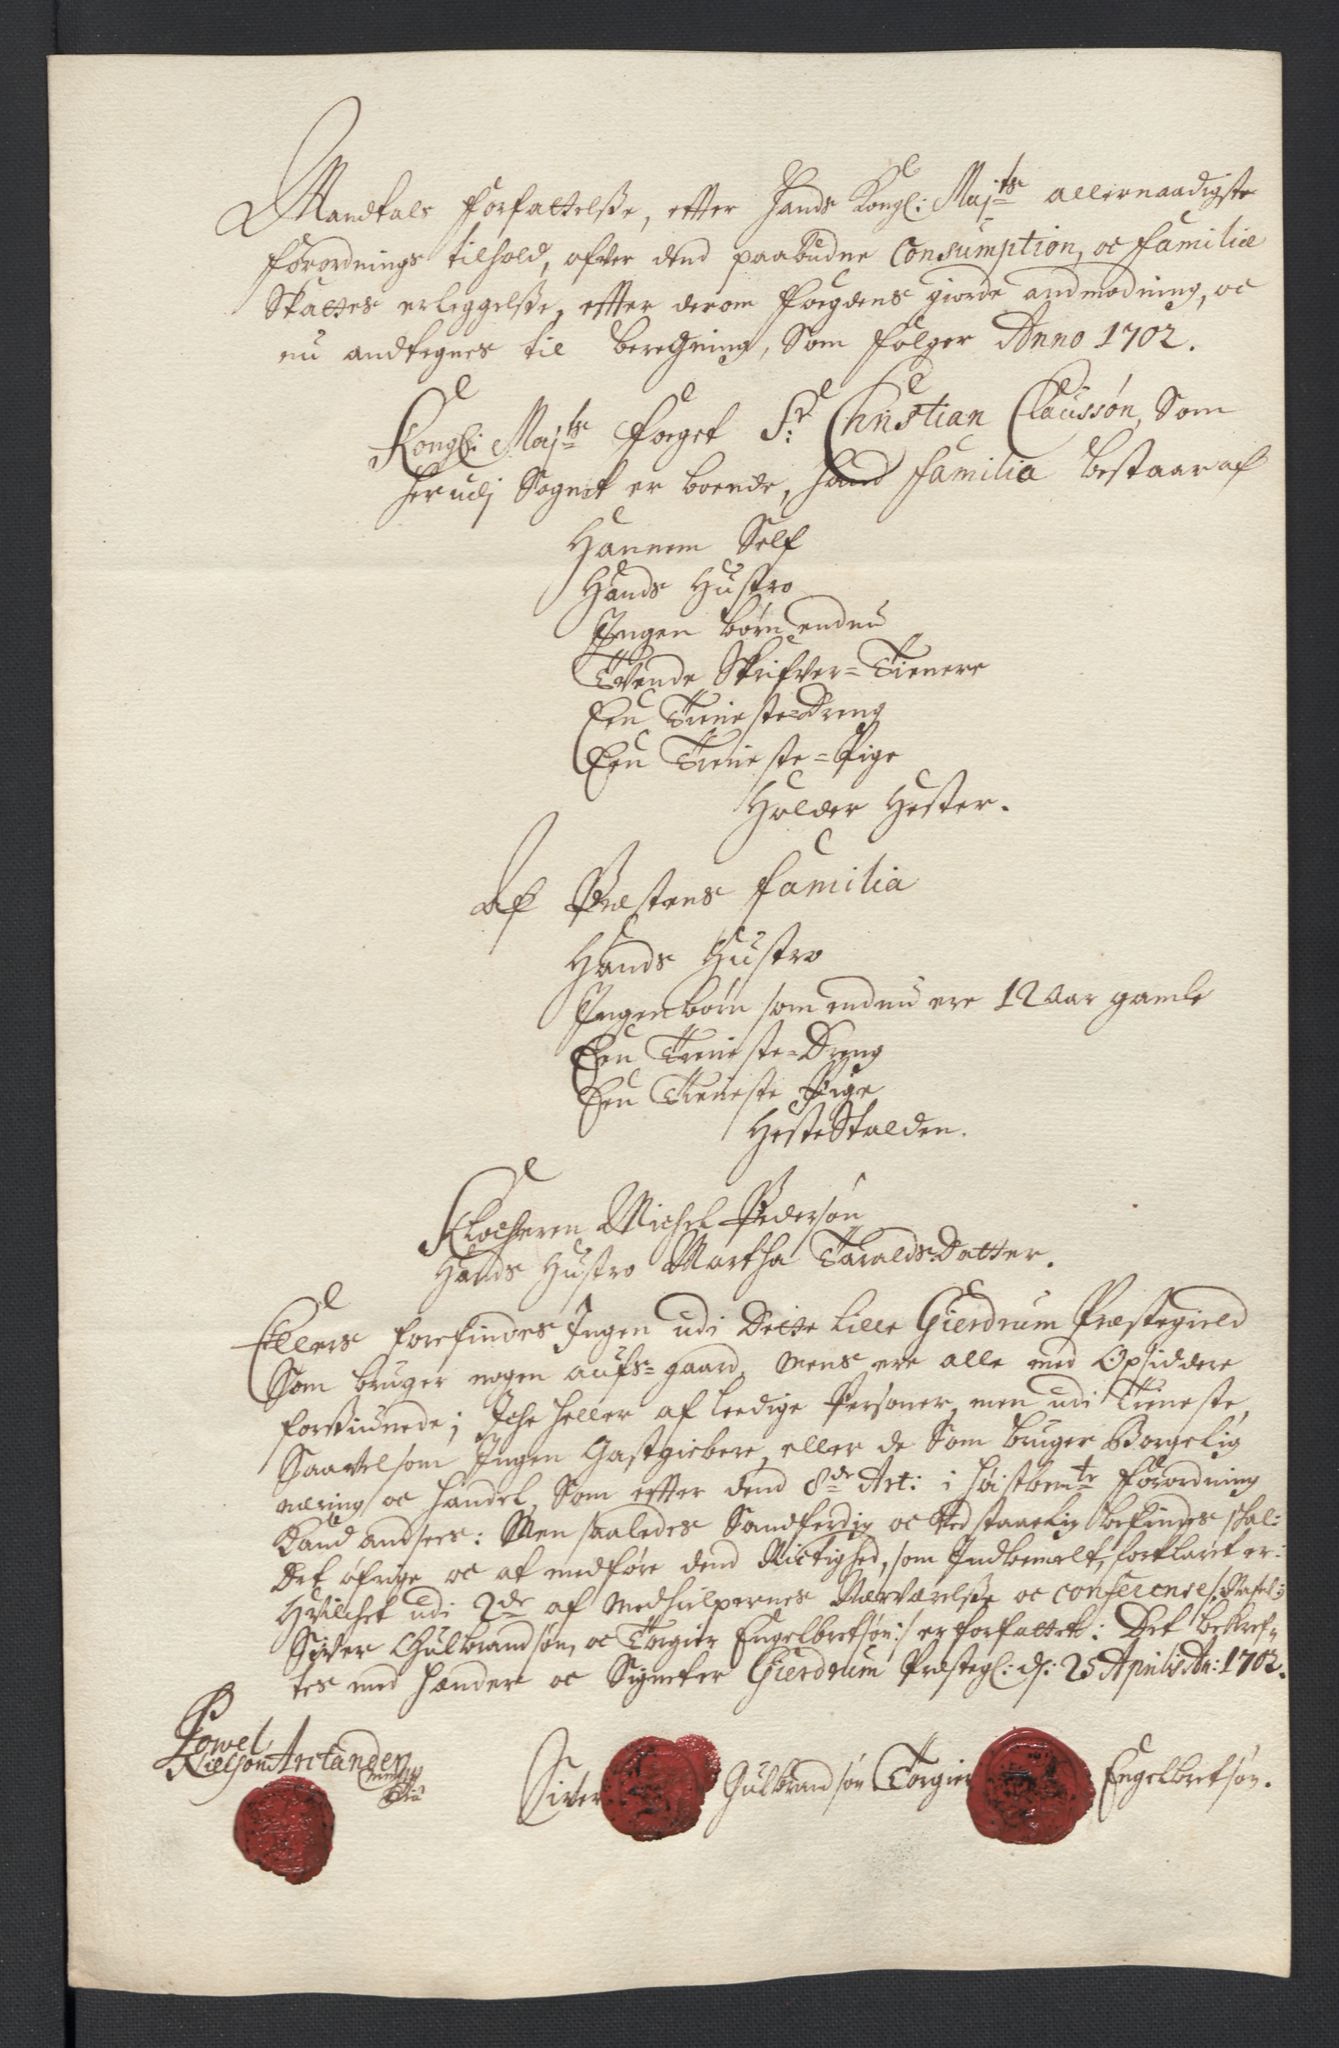 Mandtals forfattelsse, efter Hands Kongl: Maj:ts allernaadigste
forordnings tilhold, ofver dend paabudne Consumption, oc familie
Skattes erleggelsse, effter derom fogdens giorde andmodning, oc
nu andtegnes til beregning, Som følger Anno 1702.
Kongl: Maj:ts foeget Sr: Christian Claussøn, Som
her udj Sognet er boende, hand familia bestaar af
Hannem Self
Hands Hustro
Ingen børn endnu
Tvende Skrifver=Tienere
Een Tieniste=Dreng
Een Tieniste=Pige
Holder Hester.
Af Præstens familia
Hands Hustro
Ingen børn som endnu ere 12 Aar gamle
Een Tieniste=Dreng
Een Tieneste Pige
HesteStalden.
Klocheren Michel Pedersøn
Hands Hustro Martha TaraldsDatter.
Ellers forefindes Ingen udi Dette lille Gierdrum Præstegield
Som bruger nogen aufs=gaard, mens ere alle med Opsiddere
forsiunede; Iche heller af leedige Personer, men udi Tieneste,
Saavelsom Ingen Gastgiebere, eller de Som bruger Borgelig
næring oc handel, Som efter dend 8de Art: i høistbemte forordning
Kand andsees: Men saaledes Sandferdig oc Vedstaaelig befindes skal:
Det øfrige oc af medføre dend Rictighed, som Indbemelt, forklaret er:
Hvilchet udi 2de af Medhielpernes Nærværelsse oc conference/:
Siver Gulbrandsøn, oc Torgier Engelbretsøn:/ er forfattet: Det bekref-
tes med hænder oc Signeter Gierdrum Præstegl: d: 25 Aprilis An: 1702.
Powel
Nielsøn Arctander
Siver Gulbrandsøn Torgier Engelbretsøn.